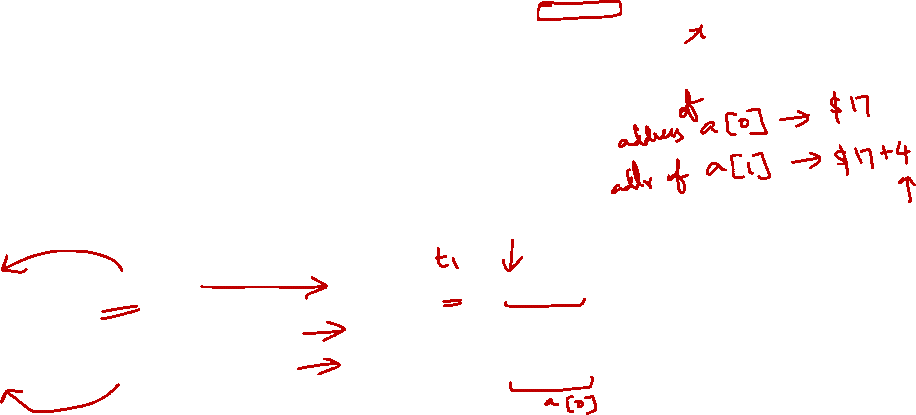 x
address of a[0] → $17
addr of a[1] → $17+4
t1
=
a[0]